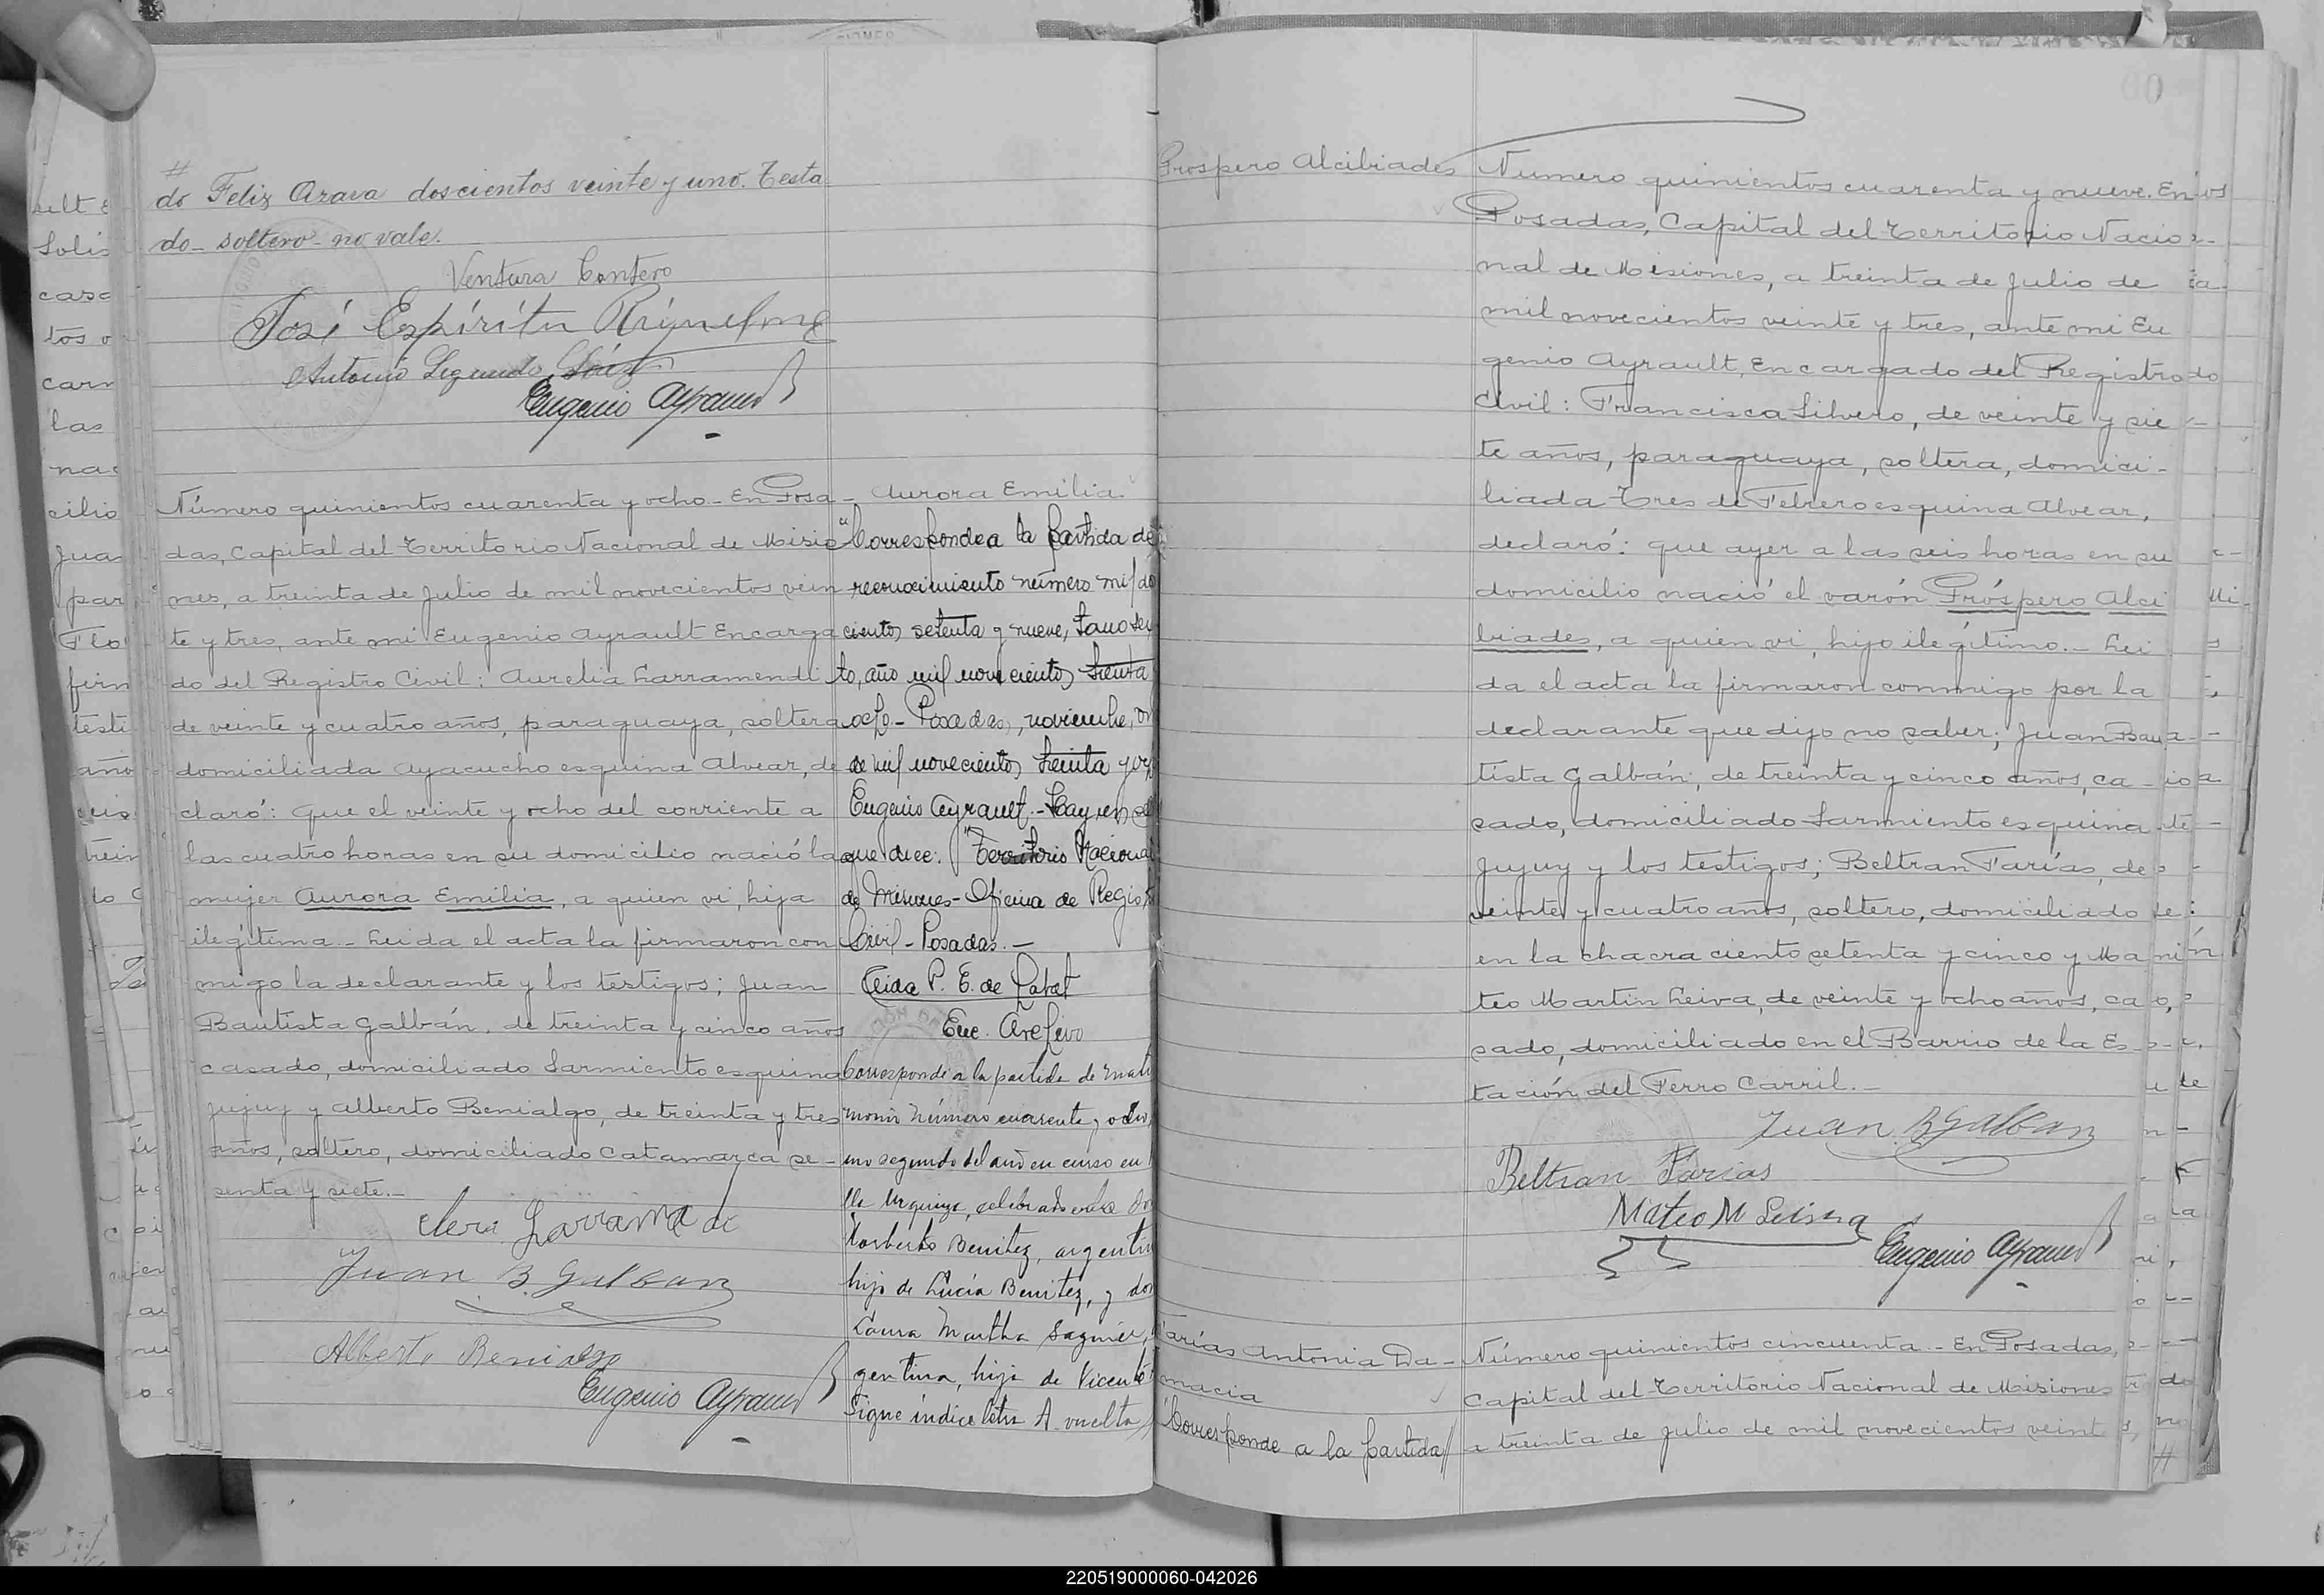 #
do Feliz Arava doscientos veinte y uno. Testa
do - soltero - no vale.
Ventura Contero
José Espíritu Riquelme
Antonio Segundo
Eugenio Ayrault
Número quinientos cuarenta y ocho - En Posa
das, Capital del Territorio Nacional de Misio
nes, a treinta de Julio de mil novecientos vein
te y tres, ante mi Eugenio Ayrault Encarga
do del Registro Civil: Aurelia Larramendi
de veinte y cuatro años, paraguaya, soltera
domiciliada Ayacucho esquina Alvear, de
claró: que el veinte y ocho del corriente a
las cuatro horas en su domicilio nació la
mujer Aurora Emilia, a quien vi, hija
ilegítima. - Leida el acta la firmaron con
migo la declarante y los testigos; Juan
Bautista Galbán, de treinta y cinco años
casado, domiciliado Sarmiento esquina
Jujuy y Alberto Benialgo, de treinta y tres
años, soltero, domiciliado Catamarca se-
senta y siete. -
Juan B. Galban
Alberto Benialgo
Eugenio Ayrault
- Aurora Emilia.
"Corresponde a la partida de
reconocimiento número mil do
cientos setenta y nueve, tomo sex
to, año mil novecientos treinta
ocho - Posadas, noviembre,
de mil novecientos treinta y oc
Eugenio Ayrault. - Hay un se
que dice: "Territorio Nacional
de Misiones - Oficina de Regist
Civil - Posadas. -
P. E. de
Enc. Archivo
Corresponde a la partida de matri
monio número cuarenta y ocho,
mo segundo del año en curso en
lla Urquiza, celebrado entre don
Norberto Benitez, argentin
hijo de Lucía Benitez, y do
Laura Martha Sagnier,
gentina, hija de Vicente
Sigue índice letra A. vuelta
Prospero Alcibiades
Numero quinientos cuarenta y nueve. En
Posadas, Capital del Territorio Nacio-
nal de Misiones, a treinta de Julio de
mil novecientos veinte y tres, ante mi Eu
genio Ayrault, Encargado del Registro
Civil: Francisca Silvero, de veinte y sie
te años, paraguaya, soltera, domici-
liada Tres de Febrero esquina Alvear,
declaró: que ayer a las seis horas en su
domicilio nació el varón Próspero Alci
biades, a quien vi, hijo ilegítimo. - Lei
da el acta la firmaron conmigo por la
declarante que dijo no saber; Juan Bau
tista Galbán, de treinta y cinco años, ca-
sado, domiciliado Sarmiento esquina
Jujuy y los testigos; Beltran Farías, de
veinte y cuatro años, soltero, domiciliado
en la chacra ciento setenta y cinco y Ma
teo Martin Leiva, de veinte y ocho años, ca
sado, domiciliado en el Barrio de la Es-
tación del Ferro Carril. -
Juan B Galban
Beltran Farías
Mateo M Leiva
Eugenio Ayrault
Farías Antonia Da-
macia
Corresponde a la partida
Número quinientos cincuenta. - En Posadas,
Capital del Territorio Nacional de Misiones
a treinta de Julio de mil novecientos veint
220519000060-042026